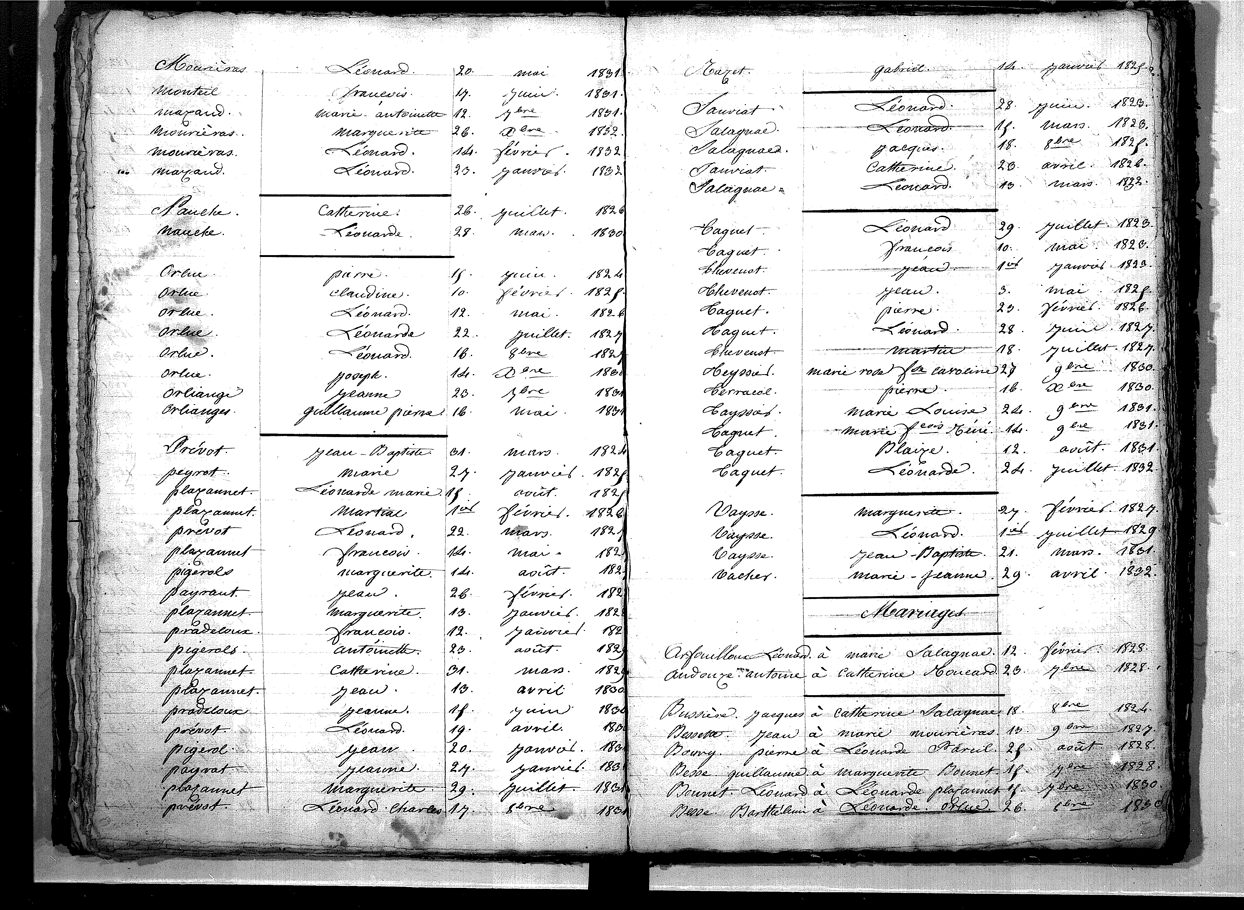 Mourieras Léonard. 20. mai 1831
Monteil françois. 17. juin. 1831.
mazaud. marie antoinette 12. 7bre 1831.
Mourieras. marguerite 26. Xbre 1832.
mourieras. Léonard. 14. février. 1832
mazaud. Léonard. 23. janvier 1832
Nauche. Catherine. 26. juillet. 1826
nauche Léonarde. 28. mars. 1830
Orlue. pierre 15. juin. 1824
orlue. claudine. 10. février. 1825.
orlue. Léonard. 12. mai. 1826
orlue. Léonarde 22. juillet. 1827
orlue. Léonard. 16. 8bre 182
orlue. joseph. 14. Xbre 183
orliange jeanne 23. 7bre 183
orlianges guillaume pierre 16. mai. 183
Prévot. jean-Baptiste 31. mars. 1824
peyrot. marie 27. janvier. 1825
plazannet Léonarde marie 15. août. 1825
plazannet. martial 1er février. 1826
prévot Léonard. 22. mars. 182
plazannet françois. 14. mai. 182
pigerols marguerite. 14. août. 182
payraut jean. 26. février. 182
plazannet marguerite. 13. janvier. 182
pradeloux. françois. 12. janvier. 182
pigerols. antoinette. 23. août. 182
plazannet Catherine. 31. mars. 1829
plazannet. jean. 13. avril 1830
pradeloux jeanne. 15. juin 183
prévot. Léonard. 19. avril. 183
pigerol. jean. 20. janvier. 183
payrat. jeanne. 27. janvier. 183
plazannet marguerite. 29. juillet. 183
prévot. Léonard Charles 17. 8bre 183
Razet. gabriel. 14. janvier 1825.
Sauviat. Léonard. 28. juin. 1823.
Salagnac. Léonard. 15. mars. 1823.
Salagnac. jacques. 18. 8bre 1825.
Sauviat. Catherine. 23. avril. 1826.
Salagnac. Léonard. 13. mars. 1832.
Taguet. Léonard 29. juillet. 1823.
Taguet. françois 10. mai. 1823.
Thevenot. jean 1er janvier. 1823.
Thevenot. jean. 3. mai. 1825.
Taguet. pierre. 23. février. 1826.
Taguet. Léonard. 28. juin 1827.
Thevenot martin 18. juillet. 1827.
Teyssier. marie rose fse caroline 27 9bre 1830.
Terracol. pierre. 16. Xbre 1830.
Tayssier. marie Louise 24. 9bre 1831.
Taguet. marie fcois Réné. 14. 9bre 1831.
Taguet Blaize. 12. août. 1831
Taguet. Léonarde. 24. juillet. 1832
Vaysse. marguerite. 27. février. 1827.
Vaysse. Léonard. 1er juillet 1829
Vaysse. jean-Baptiste 21. mars. 1831.
Vacher. marie-jeanne. 29. avril. 1832.
Mariages
Arfouilloux Léonard. à marie Salagnac. 12. février. 1828.
Audouze antoine à Catherine Roucard. 23. 7bre 1828.
Bussière. jacques à Catherine Salagnac. 18. 8bre 1824.
jean à marie mourieras. 13. 9bre 1827.
Bourg pierre à Léonarde Nareil. 25. août 1828.
Besse guillaume à marguerite Bounet. 15. 7bre 1828.
Bounet. Léonard à Léonarde plazannet 15. 7bre 1830.
Besse. Barthélemi à Léonarde. orlue 26. 8bre 1830